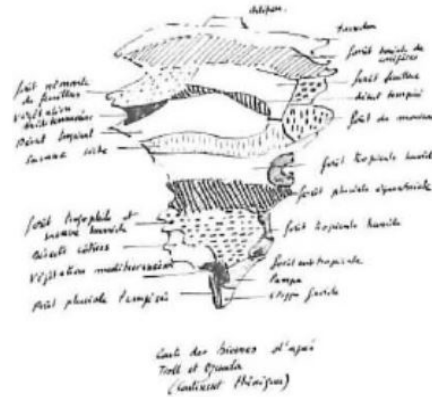 toundra
forêt boréale de
conifères
forêt feuillue
désert tempéré
forêt de mousson
forêt tropicale humide
forêt pluviale équatoriale
forêt tropicale humide
forêt subtropicale
Pampa
steppe froide
forêt
de feuillus
Végétation
méditerranéenne
Désert tropical
Savane sèche
forêt tropophile et
savane humide
Déserts côtiers
Végétation méditerranéenne
forêt pluviale tempérée
Carte des biomes d'après
Troll et
(Continent